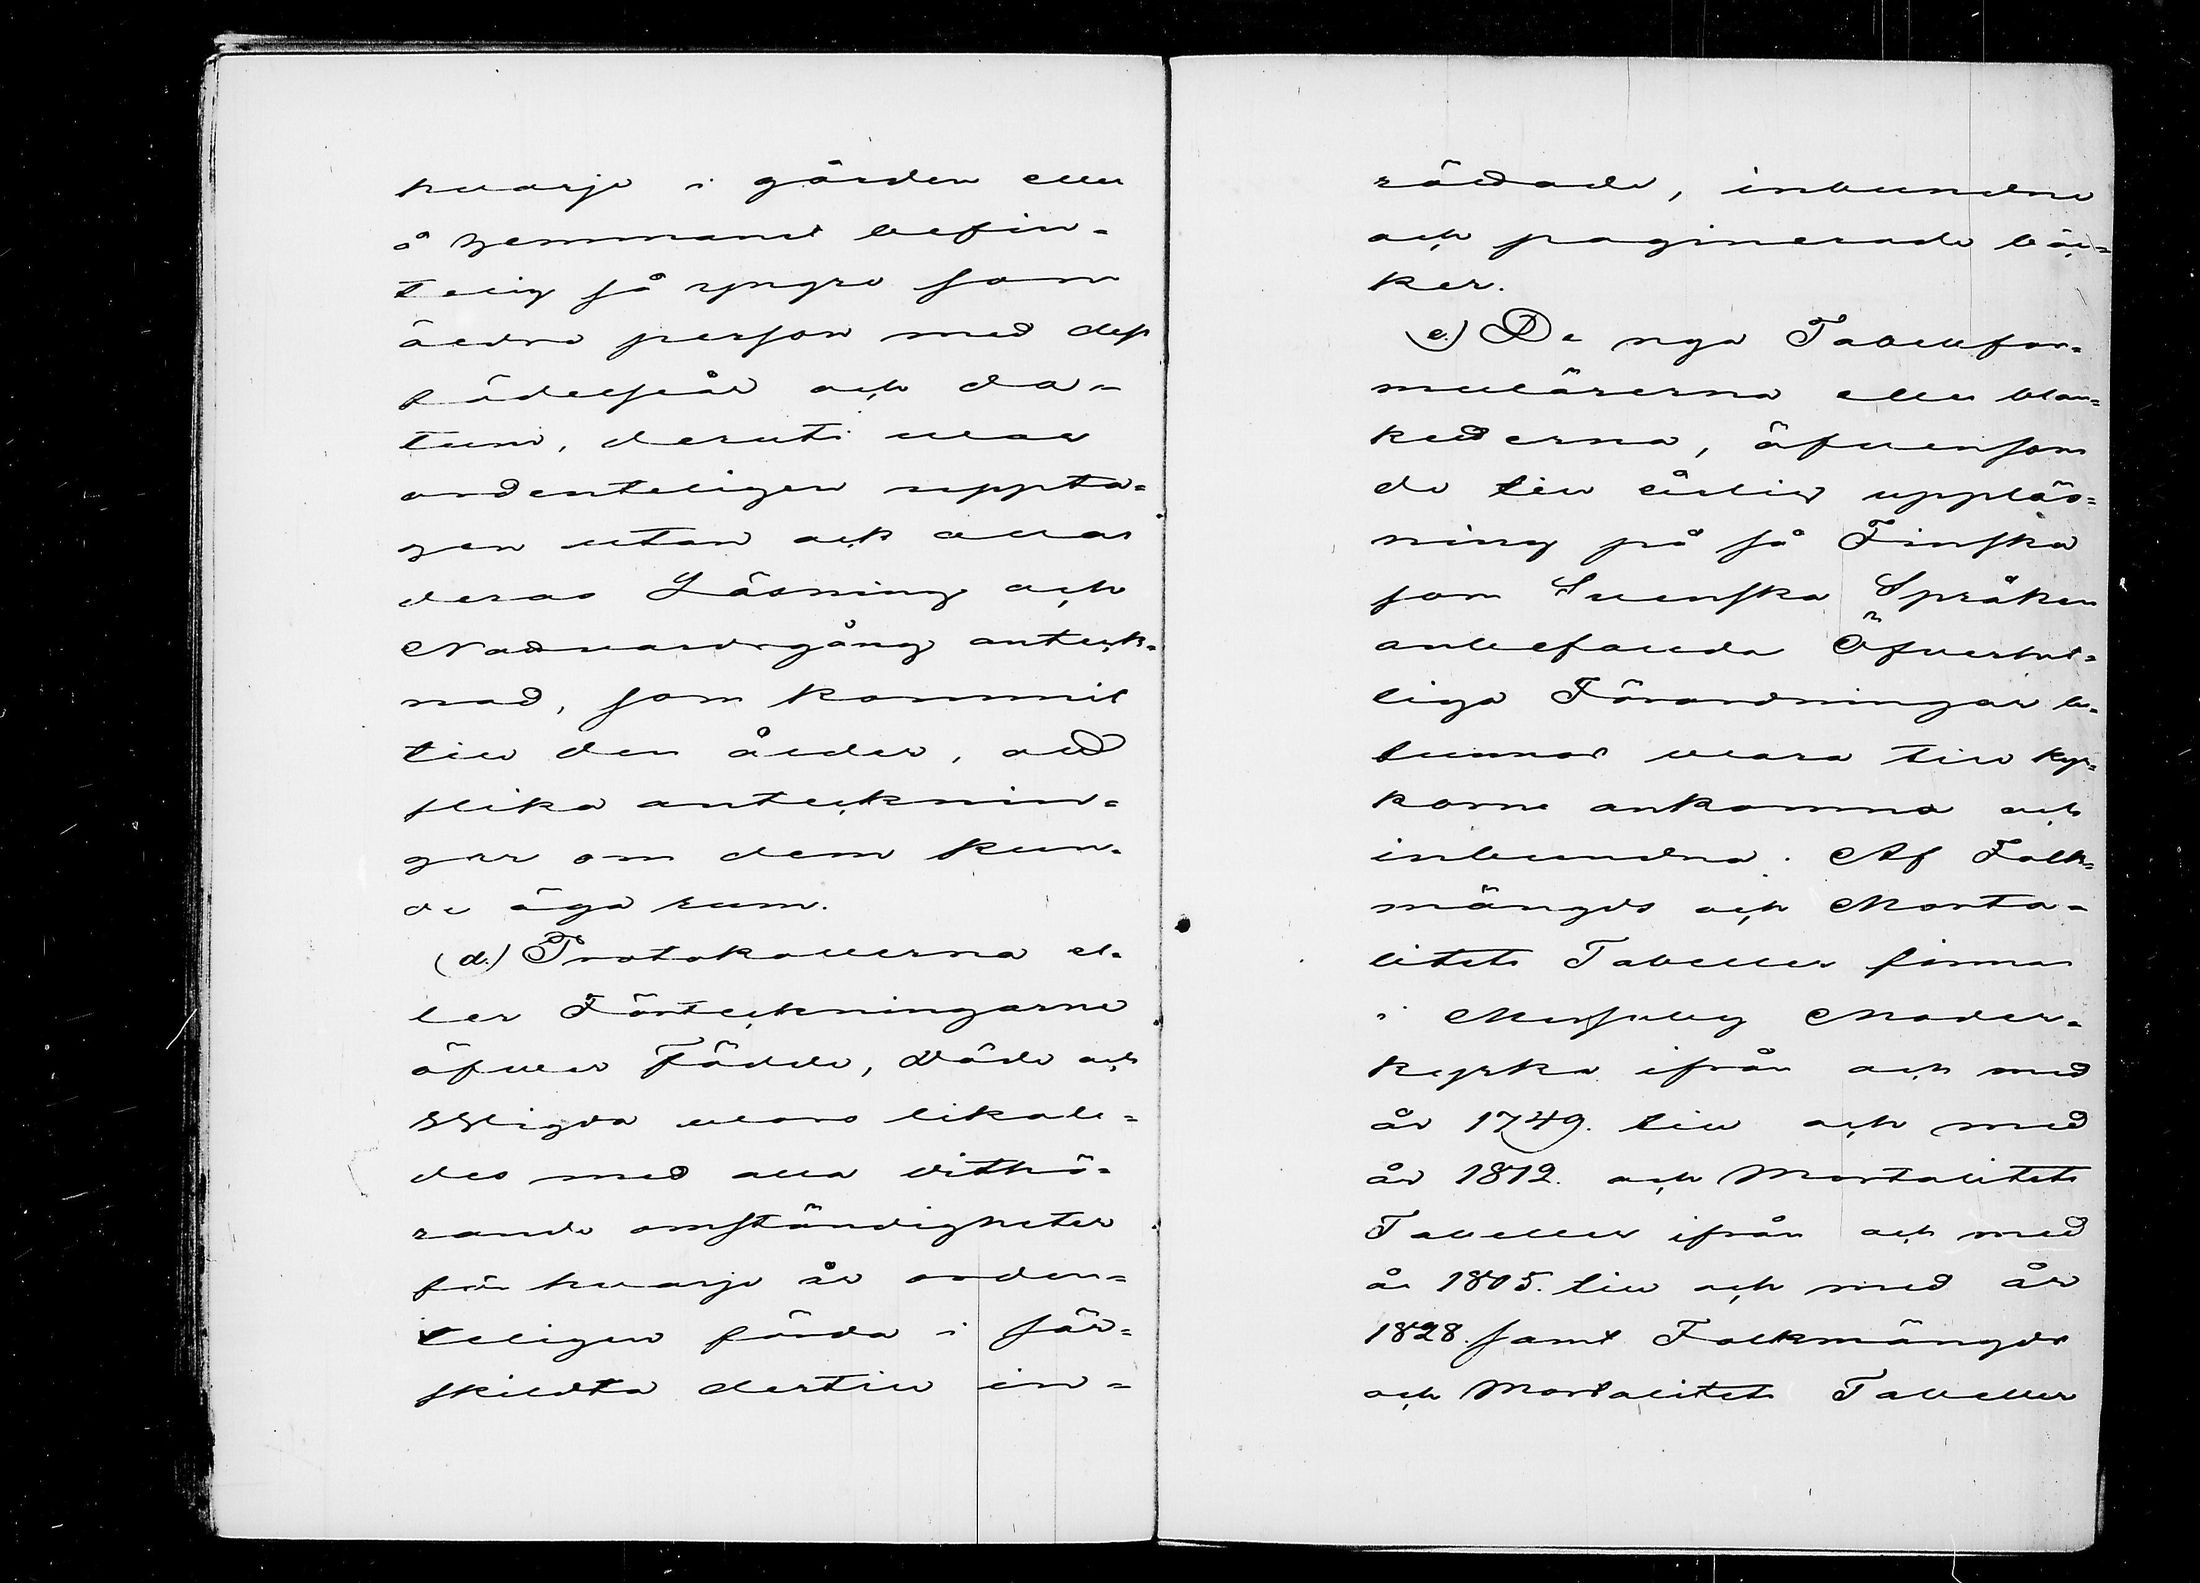 hvarje i gården eller
å hemmanet befin-
telig så yngre som
äldre person med dess
födelseår och da-
tum, deruti voro
ordenteligen uppta-
gen utan ock allas
deras Läsning och
Nattvardsgång anteck-
nad, som kommit
till den ålder, att
slika antecknin-
gar om dem kun-
de äga rum.
(d.) Protokollerna el-
ler Förteckningarne
öfver Födde, Döde och
Wigda voro likale-
des med alla dithö-
rande omständigheter
för hvarje år orden-
teligen förda i sär-
skildta dertill in-
rättade, inbundne
och paginerade böc-
ker.
(e.) De nya Tabellfor-
mulärerna eller blan-
ketterna, äfvensom
de till årlig uppläs-
ning på så Finska
som Svenska Språken
anbefallda Öfverhet-
liga Förordningar be-
funnos vara till kyr-
korne ankomna och
inbundna. Af Folk-
mängds och Morta-
litets Tabeller finnas
i Moder-
kyrka ifrån och med
år 1749. till och med
år 1812. och Mortalitets
Tabeller ifrån och med
år 1805. till och med år
1828. samt Folkmängds
och Mortalitets Tabeller